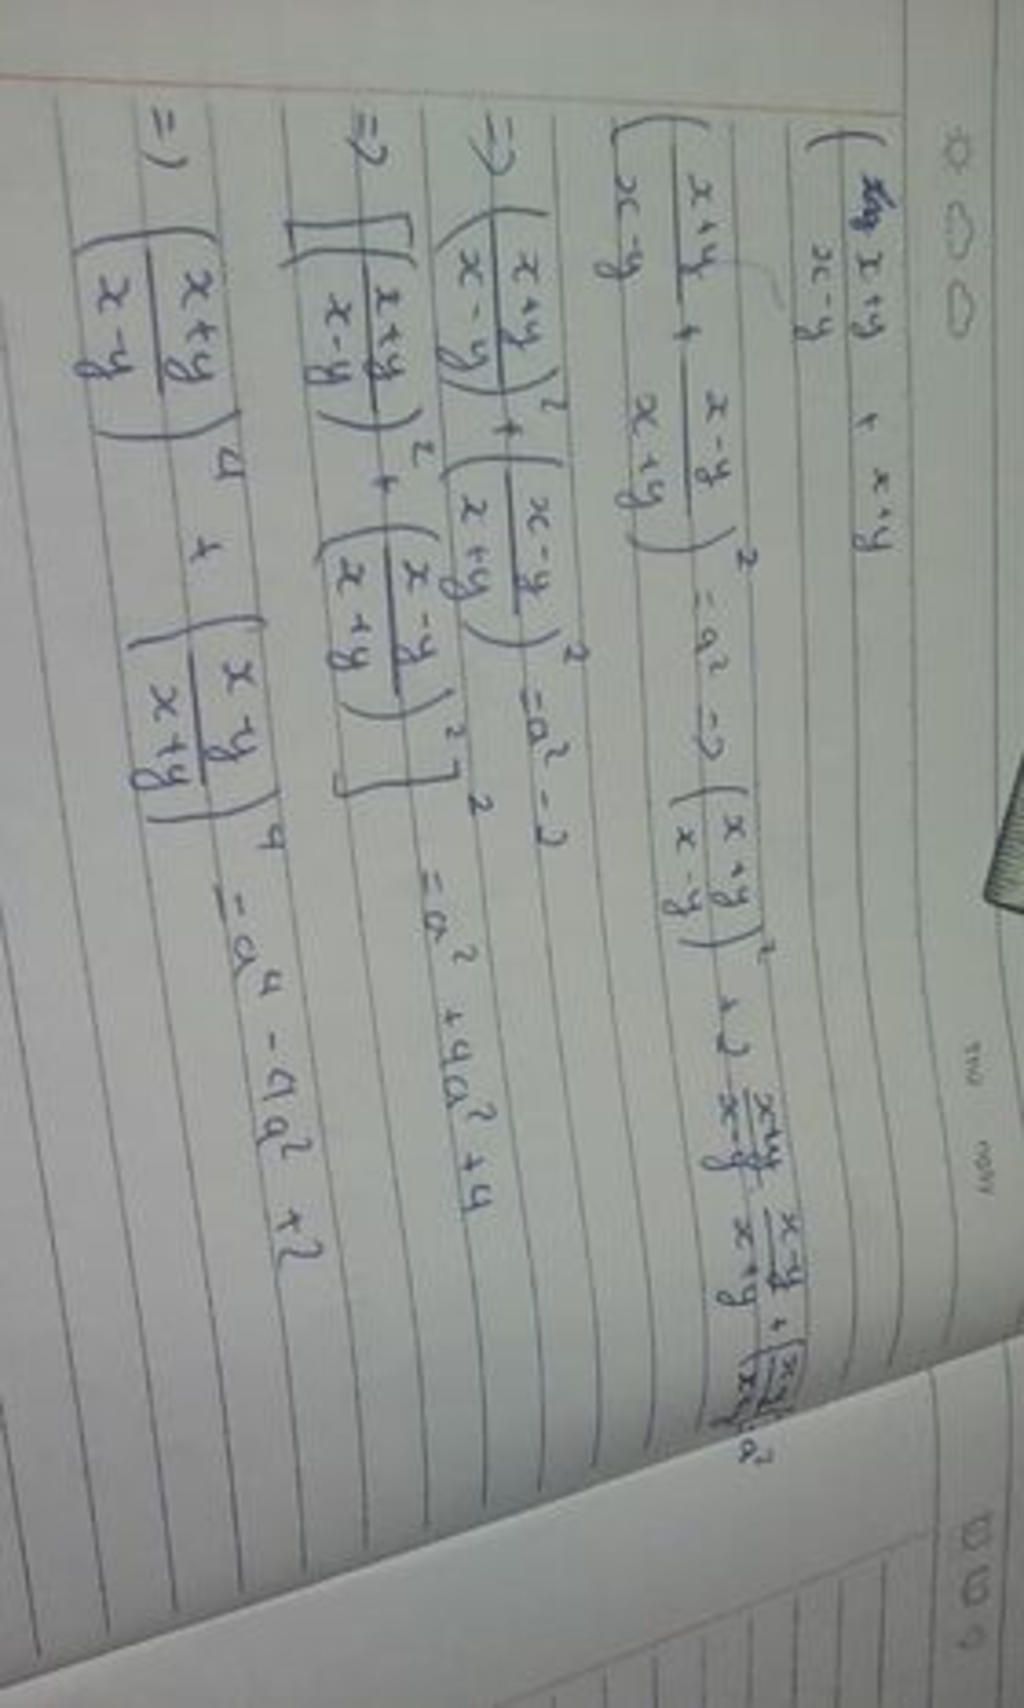 ( x+y / x-y + x+y
( x+y / x-y + x-y / x+y )² = a² → ( x+y / x-y )² + 2 x+y / x-y · x-y / x+y + ( x-y / x+y )² = a²
⇒ ( x+y / x-y )² + ( x-y / x+y )² = a² - 2
⇒ [ ( x+y / x-y )² + ( x-y / x+y )² ]² = a² + 4a² + 4
⇒ ( x+y / x-y )⁴ + ( x-y / x+y )⁴ = a⁴ - 4a² + 2